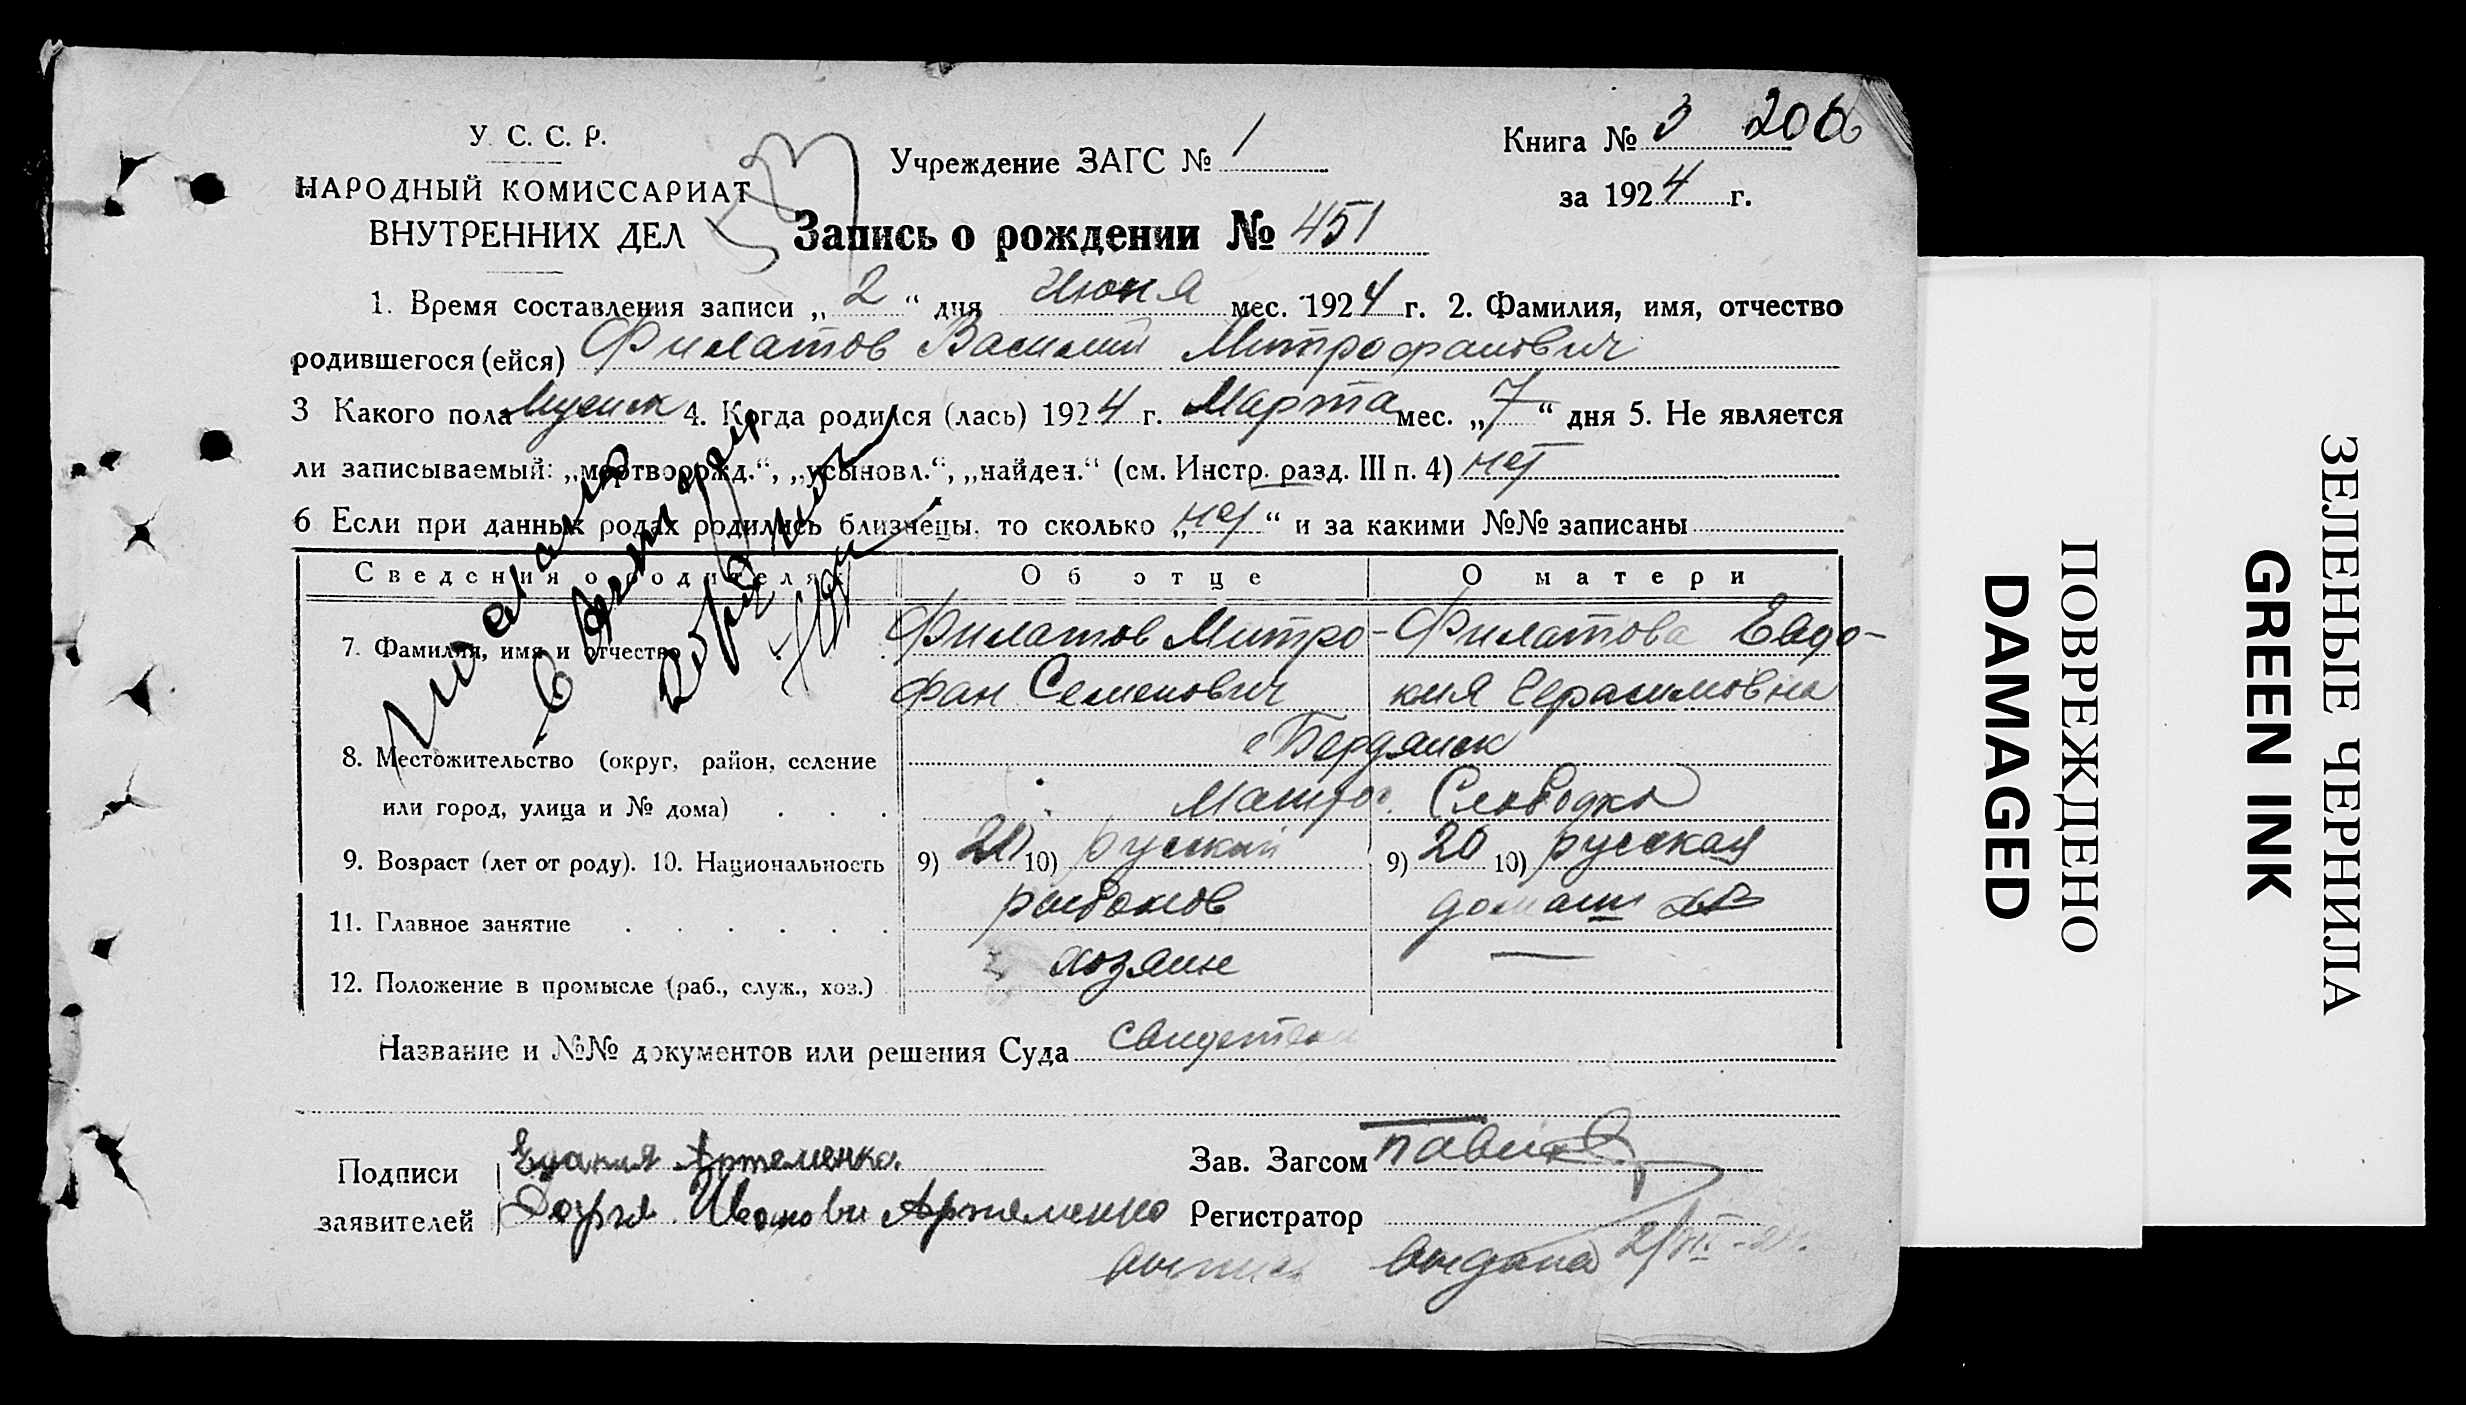 У. С. С. Р.
НАРОДНЫЙ КОМИССАРИАТ
ВНУТРЕННИХ ДЕЛ
Учреждение ЗАГС № 1
Книга № 3 206
за 1924 г.
Запись о рождении № 451
1. Время составления записи „ 2 “ дня Июня мес. 1924 г. 2. Фамилия, имя, отчество
родившегося (ейся) Филатов Василий Митрофанович
3 Какого пола мужск 4. Когда родился (лась) 1924 г. Марта мес. „ 7 “ дня 5. Не является
ли записываемый: „мертворожд.“, „усыновл.“, „найден.“ (см. Инстр. разд. III п. 4) нет
6 Если при данных родах родились близнецы, то сколько „ нет “ и за какими №№ записаны
Сведения о родителях Об отце О матери
7. Фамилия, имя и отчество Филатов Митро- Филатова Евдо-
фан Семенович кия Герасимовна
8. Местожительство (округ, район, селение Бердянск
или город, улица и № дома) . . . Матрос. Слободка
9. Возраст (лет от роду). 10. Национальность 9) 20 10) русский 9) 20 10) русская
11. Главное занятие рыболов домаш хоз
12. Положение в промысле (раб., служ., хоз.) хозяин —
Название и №№ документов или решения Суда свидетели
Подписи Артеменко Зав. Загсом
заявителей Дарья Артеменко Регистратор
выпись выдана
ПОВРЕЖДЕНО
DAMAGED
ЗЕЛЕНЫЕ ЧЕРНИЛА
GREEN INK